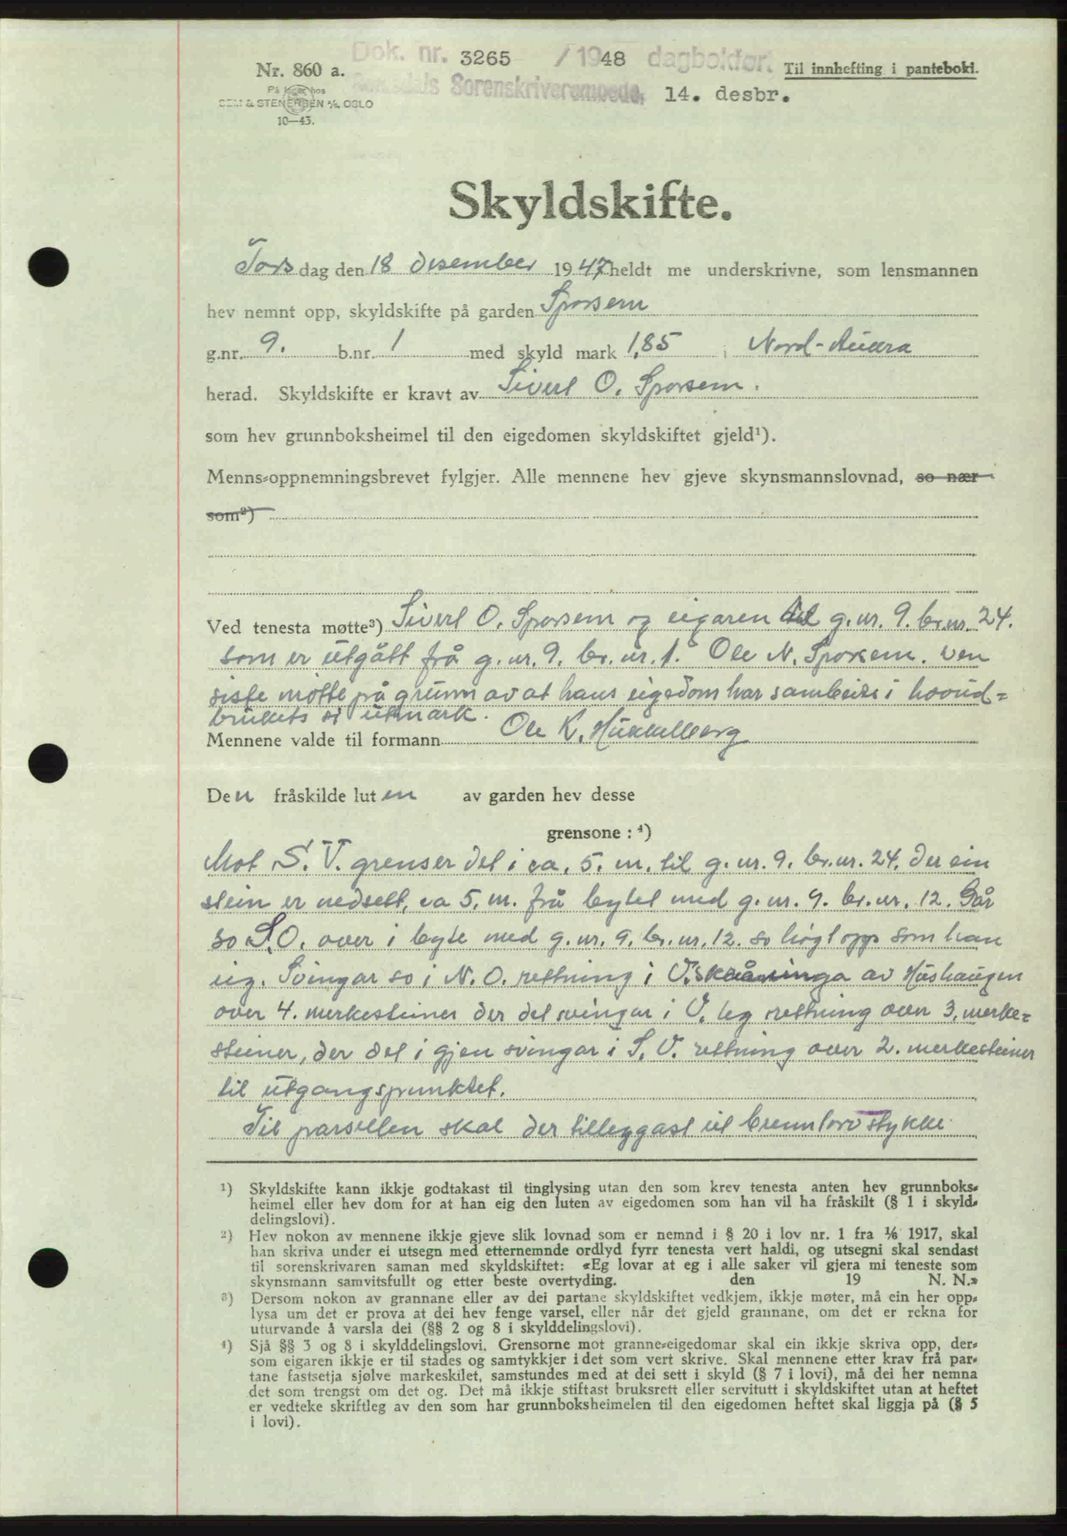 Dok. nr. 3265 / 1948 dagbokført
Nr. 860 a. Til innhefting i pantebok.
Romsdals Sorenskriverembede, 14. desbr.
På lager hos
SEM & STENERSEN A/S, OSLO
10—45.
Skyldskifte.
Torsdag den 18 desember 1947 heldt me underskrivne, som lensmannen
hev nemnt opp, skyldskifte på garden Sporsem
g.nr. 9. b.nr. 1 med skyld mark 1,85 i Nord-Aukra
herad. Skyldskifte er kravt av Sivert O. Sporsem.
som hev grunnboksheimel til den eigedomen skyldskiftet gjeld¹).
Menns-oppnemningsbrevet fylgjer. Alle mennene hev gjeve skynsmannslovnad, so nær
som²)
Ved tenesta møtte³) Sivert O. Sporsem og eigaren til g.nr. 9. br.nr. 24.
som er utgått frå g.nr. 9. br.nr. 1. Ole N. Sporsem. Den
siste møtte på grunn av at hans eigedom har sambeite i hovud-
brukets utmark.
Mennene valde til formann Ole K. Hukkelberg
Den fråskilde luten av garden hev desse
grensone : ⁴)
Mot S. V. grenser det i ca. 5. m. til g.nr. 9. br.nr. 24. der ein
stein er nedsett, ca 5. m. frå bytet med g.nr. 9. br.nr. 12. Går
so S.O. over i byte med g.nr. 9. br.nr. 12. so högt opp som han
eig. Svingar so i N. O. rettning i av Hushaugen
over 4. merkesteiner der det svingar i V. leg rettning over 3. merke-
steiner, der det i gjen svingar i S. V. rettning over 2. merkesteiner
til utgangspunktet.
Til parsellen skal der tilleggast eit brenntorvstykke
¹) Skyldskifte kann ikkje godtakast til tinglysing utan den som krev tenesta anten hev grunnboks-
heimel eller hev dom for at han eig den luten av eigedomen som han vil ha fråskilt (§ 1 i skyld-
delingslovi).
²) Hev nokon av mennene ikkje gjeve slik lovnad som er nemnd i § 20 i lov nr. 1 fra 1/6 1917, skal
han skriva under ei utsegn med etternemnde ordlyd fyrr tenesta vert haldi, og utsegni skal sendast
til sorenskrivaren saman med skyldskiftet: «Eg lovar at eg i alle saker vil gjera mi teneste som
skynsmann samvitsfullt og etter beste overtyding. den 19 N. N.»
³) Dersom nokon av grannane eller av dei partane skyldskiftet vedkjem, ikkje møter, må ein her opp-
lysa um det er prova at dei hev fenge varsel, eller når det gjeld grannane, om det er rekna for
uturvande å varsla dei (§§ 2 og 8 i skylddelingslovi).
⁴) Sjå §§ 3 og 8 i skylddelingslovi. Grensorne mot granne-eigedomar skal ein ikkje skriva opp, der-
som eigaren ikkje er til stades og samtykkjer i det som vert skrive. Skal mennene etter krav frå par-
tane fastsetja sjølve markeskilet, samstundes med at dei sett i skyld (§ 7 i lovi), må dei her nemna
det som trengst om det og. Det må ikkje stiftast bruksrett eller servitutt i skyldskiftet utan at heftet
er vedteke skriftleg av den som har grunnboksheimelen til den eigedomen heftet skal liggja på (§ 5
i lovi).